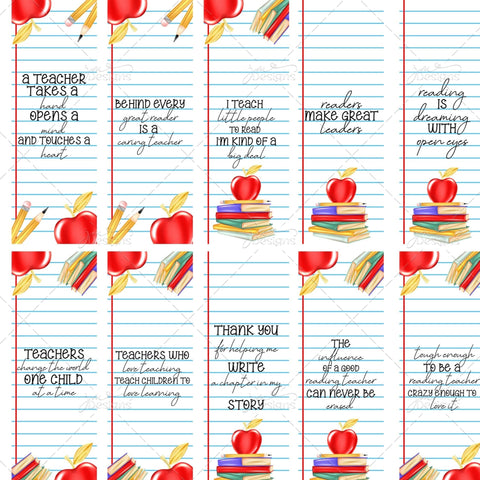 A TEACHER
TAKES A
hand
OPENS A
mind
AND TOUCHES A
heart
BEHIND EVERY
great reader
IS A
caring teacher
I TEACH
little people
TO READ
I'M KIND OF A
big deal
readers
MAKE GREAT
leaders
reading
IS
dreaming
WITH
open eyes
TEACHERS
change the world
ONE CHILD
at a time
TEACHERS WHO
love teaching
TEACH CHILDREN TO
love learning
THANK YOU
for helping me
WRITE
a chapter in my
STORY
THE
influence
OF A GOOD
reading teacher
CAN NEVER BE
erased
tough enough
TO BE A
reading teacher
CRAZY ENOUGH TO
love it